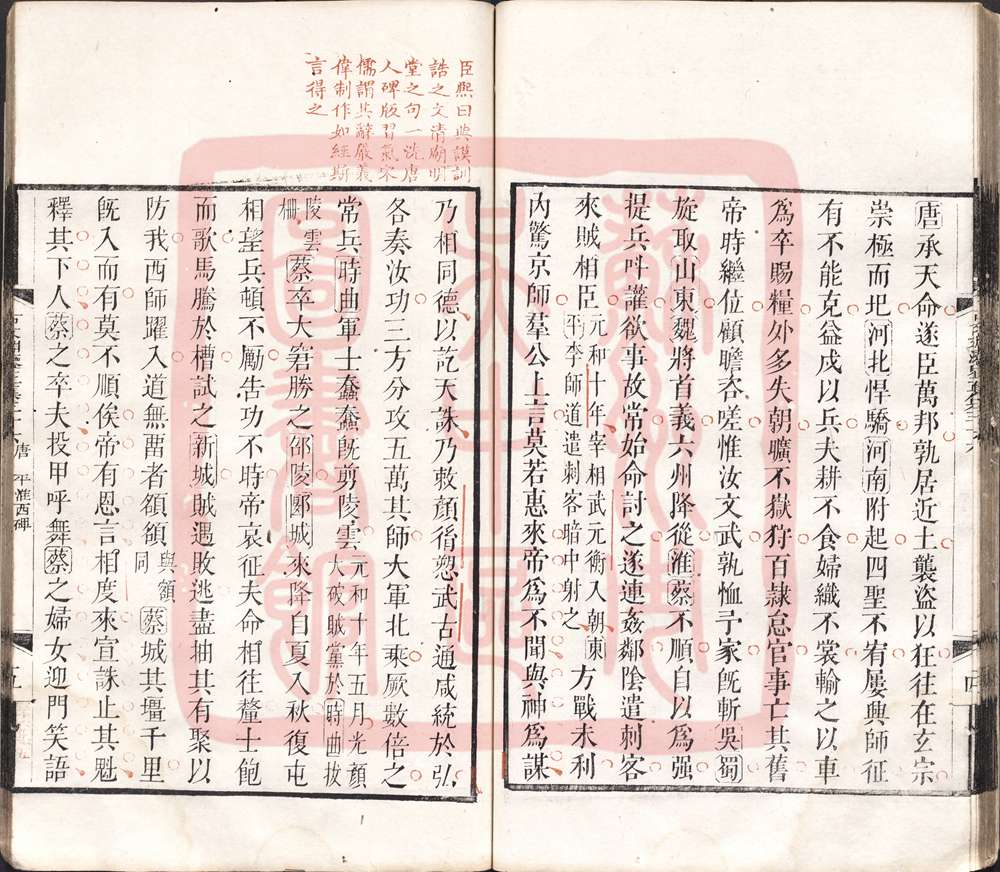 唐承天命遂臣萬邦孰居近土襲盜以狂往在玄宗
崇極而圯河北悍驕河南附起四聖不宥屢興師征
有不能克益戍以兵夫耕不食婦織不裳輸之以車
爲卒賜糧外多失朝曠不獄狩百隸怠官事亡其舊
帝時繼位顧瞻咨嗟惟汝文武孰恤予家旣斬吳蜀
旋取山東魏將首義六州降從淮蔡不順自以爲强
提兵叫讙欲事故常始命討之遂連姦鄰陰遣刺客
來賊相臣元和十年宰相武元衡入朝東平李師道遣刺客暗中射之方戰未利
內驚京師羣公上言莫若惠來帝爲不聞與神爲謀
四
臣熙曰典謨訓
誥之文清廟明
堂之句一洗唐
人碑版習氣宋
儒謂其辭嚴義
偉制作如經斯
言得之
乃相同德以訖天誅乃敕顏胤愬武古通咸統於弘
各奏汝功三方分攻五萬其師大軍北乘厥數倍之
常兵時曲軍士蠢蠢旣剪陵雲元和十年五月光顏大破賊黨於時曲拔
陵雲柵蔡卒大窘勝之邵陵郾城來降自夏入秋復屯
相望兵頓不勵告功不時帝哀征夫命相往釐士飽
而歌馬騰於槽試之新城賊遇敗逃盡抽其有聚以
防我西師躍入道無畱者頟頟與額同蔡城其壃千里
旣入而有莫不順俟帝有恩言相度來宣誅止其魁
釋其下人蔡之卒夫投甲呼舞蔡之婦女迎門笑語
唐 平淮西碑
五